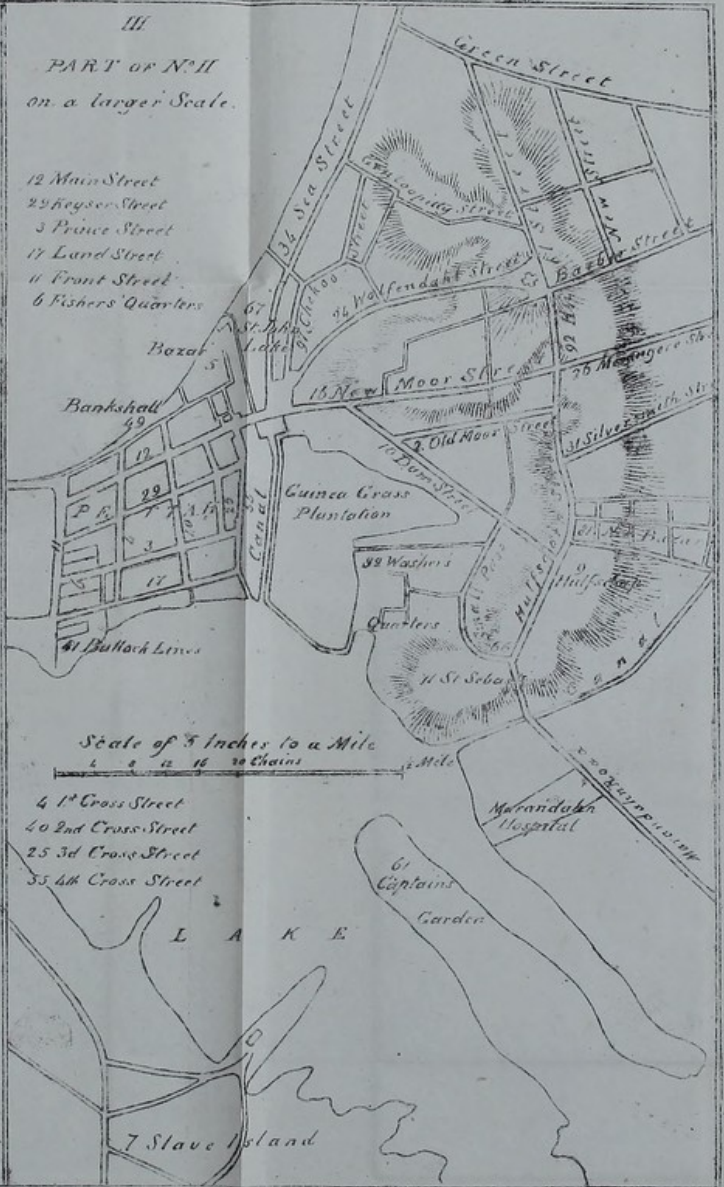 III
PART OF No. II
on a larger Scale.
12 Main Street
29 Keyser Street
3 Prince Street
17 Land Street
11 Front Street
6 Fishers' Quarters
Green Street
34 Sea Street
New Street
Street
Chekoo Street
94 Wolfendahl Street
Barber Street
67
St. John
Lake
Bazar
5
92 Hill
Bankshall
49
16 New Moor Street
36 Messengers Str
2. Old Moor Street
31 Silversmith Str
10 Dam Street
12
29
3
17
P E T T A H
11
6
Canal
Guinea Grass
Plantation
Bazar
99 Washers
Quarters
Small Pass
Hulfsdorp
9
Hulfsdorp
41 Bullock Lines
71 St Sebas
Canal
Scale of 5 Inches to a Mile
4 8 12 16 20 Chains
½ Mile
4 1st Cross Street
40 2nd Cross Street
25 3d Cross Street
55 4th Cross Street
Marandahn
Hospital
Marandahn Road
61
Captains
Garden
L A K E
7 Slave Island